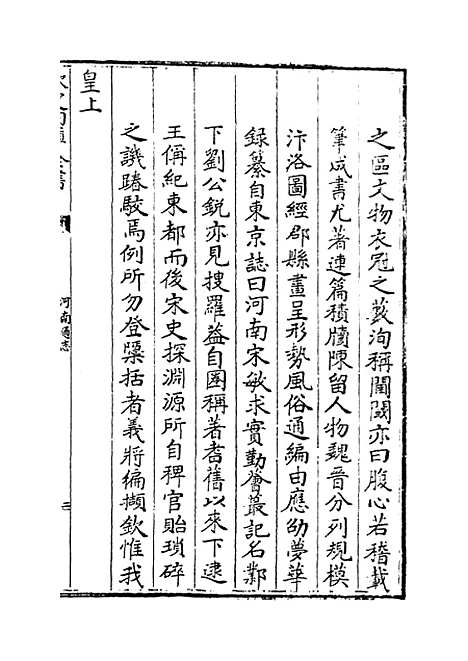 之區文物衣冠之藪洵稱閫閾亦曰腹心若稽載
筆成書尤著連篇積牘陳留人物魏晉分列規模
汴洛圖經郡縣畫呈形勢風俗通編由應劭夢華
録纂自東京誌曰河南宋敏求實勤薈蕞記名鄴
下劉公鋭亦見搜羅葢自圏稱著耆舊以來下逮
王偁紀東都而後宋史探淵源所自稗官貽瑣碎
之譏踳駮焉例所勿登櫽括者義將編擷欽惟我
皇上
河南通志
三